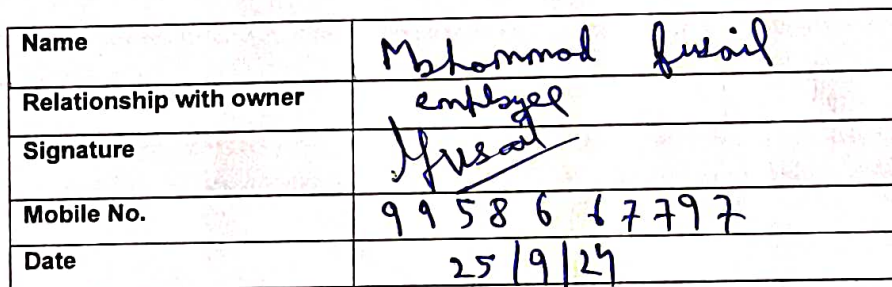 Name Mohammad fusail
Relationship with owner employee
Signature fusail
Mobile No. 9958667797
Date 25/9/24